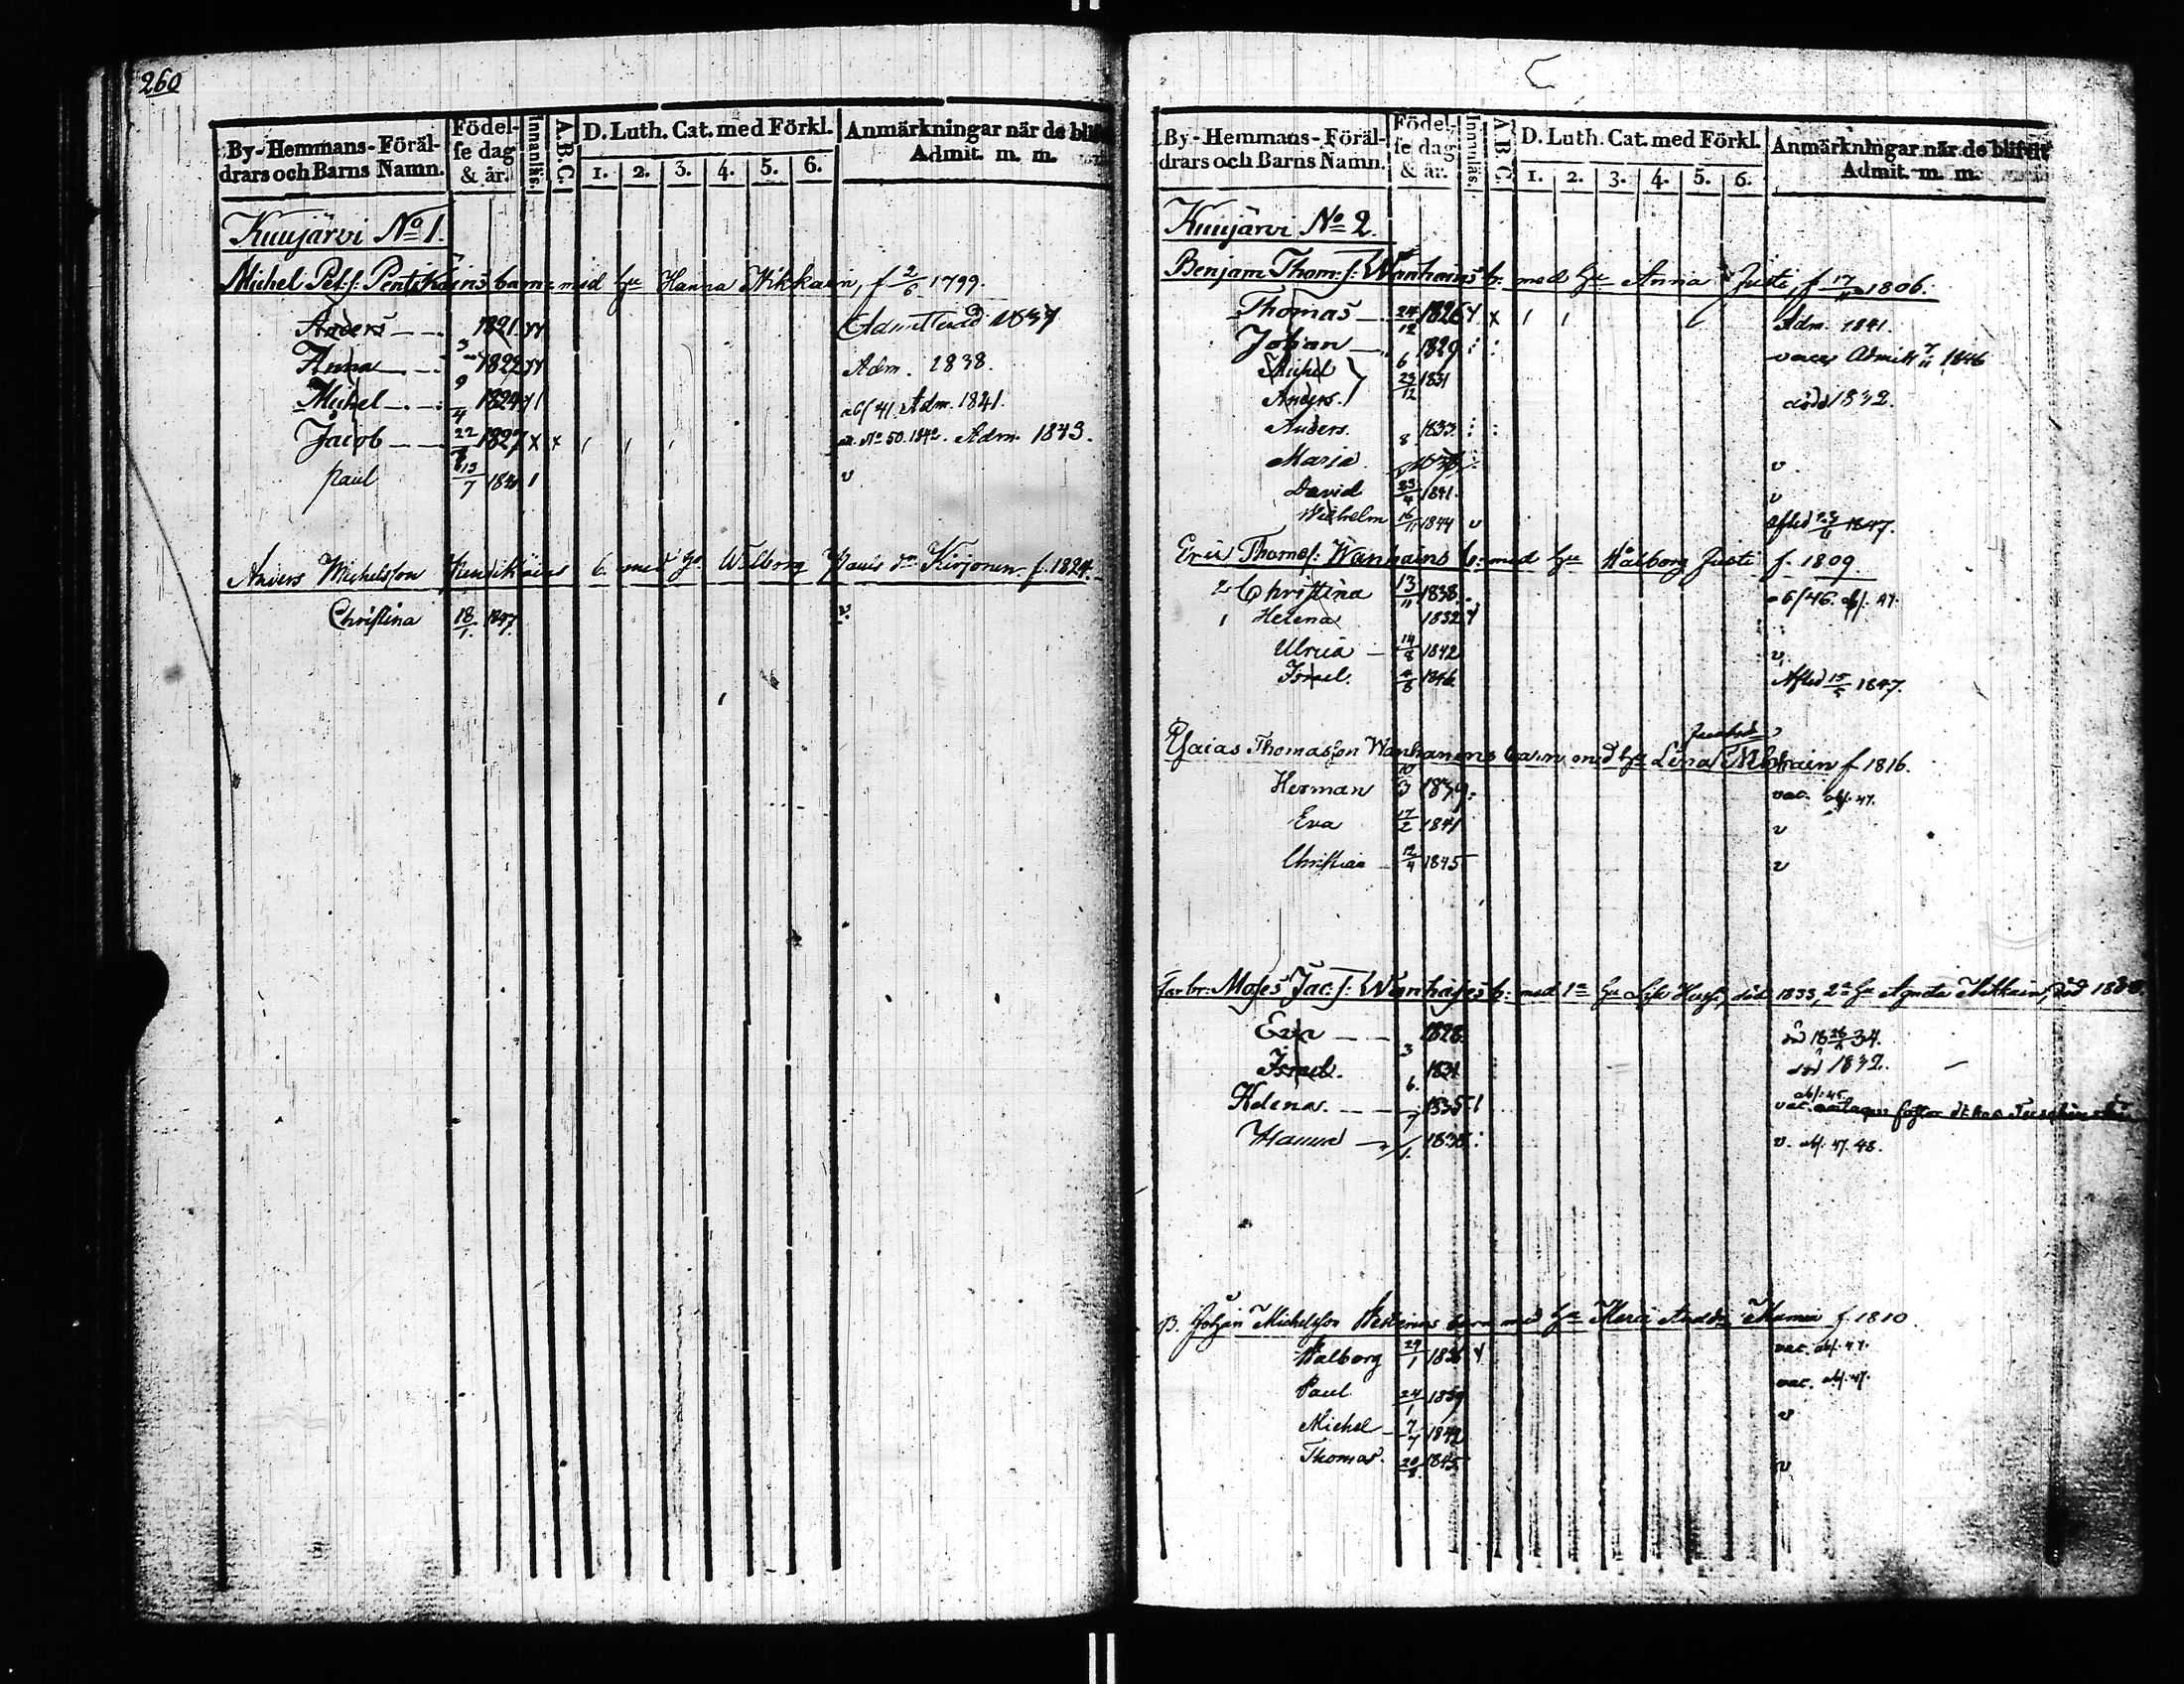 260
By-Hemmans-Föräl-
drars och Barns Namn.
Födel-
se dag
& år.
Innanläs.
A.B.C.
D. Luth. Cat. med Förkl.
1. 2. 3. 4. 5. 6.
Anmärkningar när de blif
Admit. m. m.
Kuujärvi No 1.
Michel Pet:s: Pentikäins barn med hu Hanna Nikkain, f 2/6 1799.
Anders 1821 Admitterad 1837
Anna 3 1822 Adm. 1838.
Michel 9/4 1824 abs 41. Adm. 1841.
Jacob 22 1827 x x No 50. 1842. Adm. 1843.
Paul 13/7 v
Anders Michelsson b. med hu Walborg Pauls dr Kirjonen f. 1824.
Christina 18/1 1847. v.
By-Hemmans-Föräl-
drars och Barns Namn.
Födel-
se dag
& år.
Innanläs.
A.B.C.
D. Luth. Cat. med Förkl.
1. 2. 3. 4. 5. 6.
Anmärkningar när de blifvit
Admit. m. m.
Kuujärvi No 2.
Benjam. Thom:s: Wanhains b. med hu Anna Justi, f 17/11 1806.
Thomas 24/12 1826 x Adm. 1841.
Johan 6 1829 Admitt 7/11 1846
Michel 23/12 1831
Anders. död 1832.
Anders. 8 1833
Maria v
David 23/4 1841. v
Wilhelm 16/11 1844 v Afled 1847.
Eric Thoms: Wanhains b: med hu Walborg Justi f. 1809.
2 Christina 13/11 1838. abs. 47.
1 Helena 1832
Ulrica 14/8 1842 v
Israel. 4/8 1846 Afled 15/5 1847.
Esaias Thomasson Wanhanens barn med hu Lena f 1816.
Herman 10/3 1839 vac. abs. 47.
Eva 17/2 1841 v
Christian 12/4 1845 v
Farbr: Moses Jac:s: Wanhases b: med 1a hu död 1833, 2a hu Agneta Nikkain, död
Eva 3 1828 död 34.
Israel. 6. 1831 död 1832.
Helena. 7 1835 abs. 45.
vac.
Hanna 1838 v. abs. 47. 48.
B. Johan Michelsson barn med hu f. 1810
Walborg 29/1 1836 vac. abs. 47.
Paul 24/1 1839 vac. abs. 47.
Michel 7/7 1842 v
Thomas. 20/8 1845 v